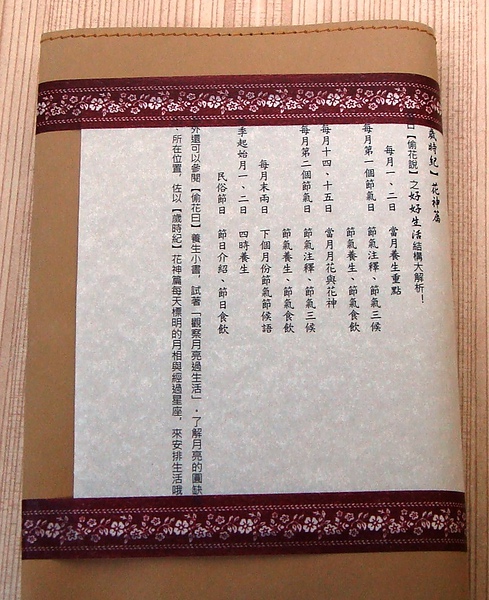 歲時紀】花神篇
曰【偷花說】之好好生活結構大解析！
每月一、二日　當月養生重點
每月第一個節氣日　節氣注釋、節氣三候
節氣養生、節氣食飲
每月十四、十五日　當月月花與花神
每月第二個節氣日　節氣注釋、節氣三候
節氣養生、節氣食飲
每月末兩日　下個月份節氣節候語
季起始月一、二日　四時養生
民俗節日　節日介紹、節日食飲
外還可以參閱【偷花曰】養生小書，試著「觀察月亮過生活」，了解月亮的圓缺
、所在位置，佐以【歲時紀】花神篇每天標明的月相與經過星座，來安排生活哦